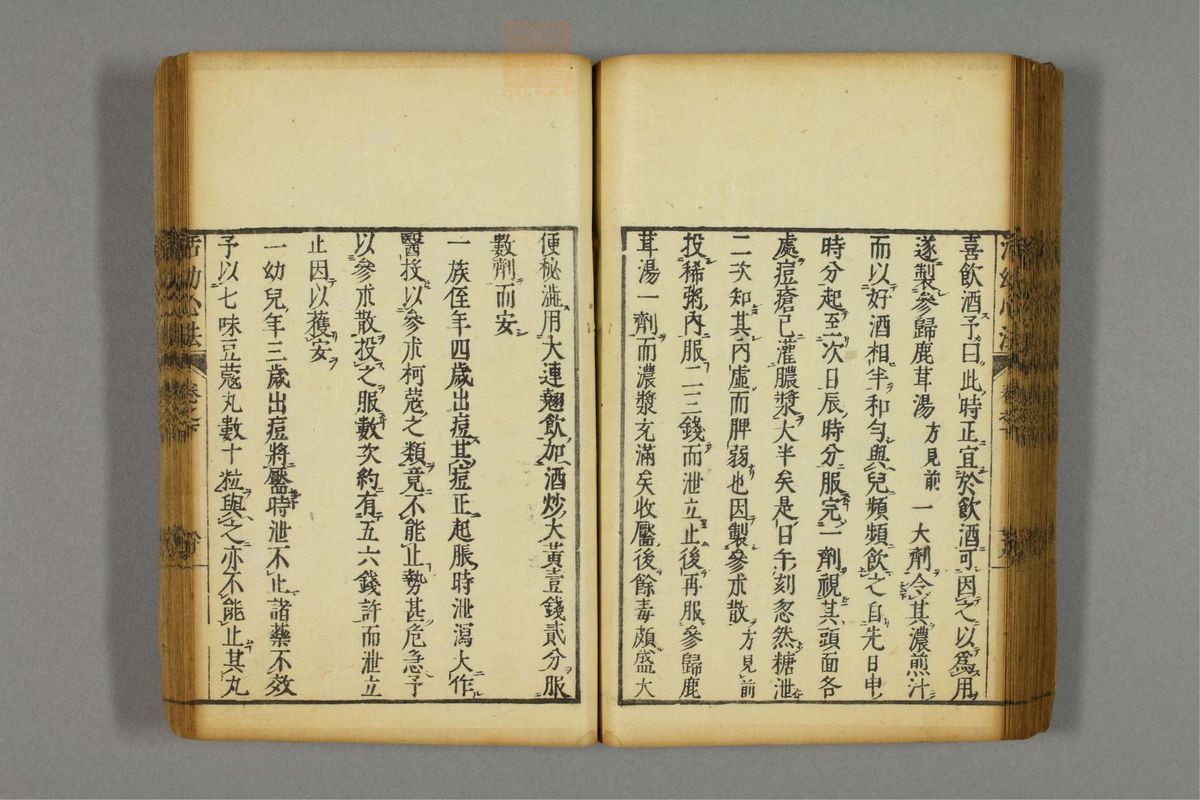 喜飲酒予曰此時正宜於飲酒可因之以爲用
遂製參歸鹿茸湯方見前一大劑令其濃煎汁
而以好酒相半和勻與兒頻頻飲之自先日申
時分起至次日辰時分服完一劑視其頭面各
處痘瘡已灌膿漿大半矣是日午刻忽然糖泄
二次知其內虛而脾弱也因製參朮散方見前
投稀粥內服二三錢而泄立止後再服參歸鹿
茸湯一劑而濃漿充滿矣收靨後餘毒頗盛大
便秘澁用大連翹飲加酒炒大黃壹錢貳分服
數劑而安
一族侄年四歲出痘其痘正起脹時泄瀉大作
醫投以參朮柯蔻之類竟不能止勢甚危急予
以參朮散投之服數次約有五六錢許而泄立
止因以獲安
一幼兒年三歲出痘將靨時泄不止諸藥不效
予以七味豆蔻丸數十粒與之亦不能止其丸
活幼心法 卷之下